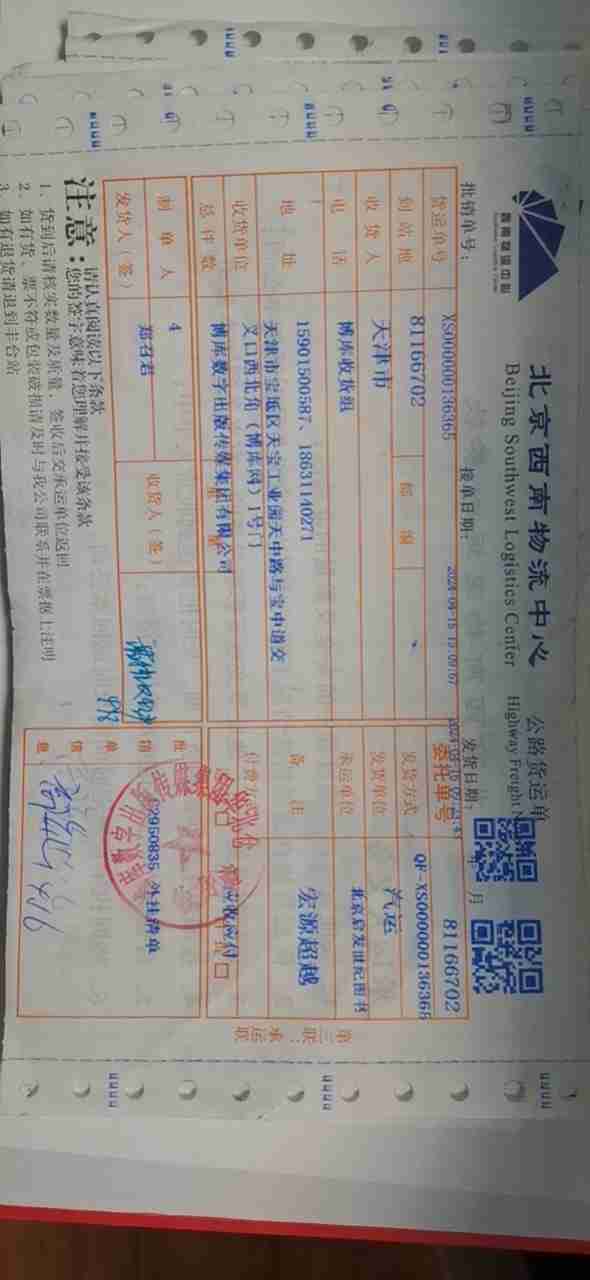 西南物流中心
北京西南物流中心 公路货运单
Beijing Southwest Logistics Center Highway Freight
批销单号： 接单日期： 发货日期： 年 月
货运单号 XS000000136365 委托单号 81166702
到站地 81166702 邮编 发货方式 QF-XS000000136368
收货人 天津市 发货单位 汽运
电话 博库收货组 承运单位 北京启发世纪图书
地址 15901500587、18631140271 备注 宏源超越
天津市宝坻区天宝工业园天中路与宝中道交
叉口西北角（博库网）1号门
收货单位 博库数字出版传媒集团有限公司 付费方式
总件数
制单人 4 收货人（签）
发货人（签） 郑召君
批销单信息 外挂清单
注意：请认真阅读以下条款
您的签字意味着您理解并接受该条款
1、货到后请核实数量及质量，签收后交承运单位返回
2、如有货、票不符或包装破损请及时与我公司联系并在票据上注明
3、如有退货请退到丰台站
第三联：承运联